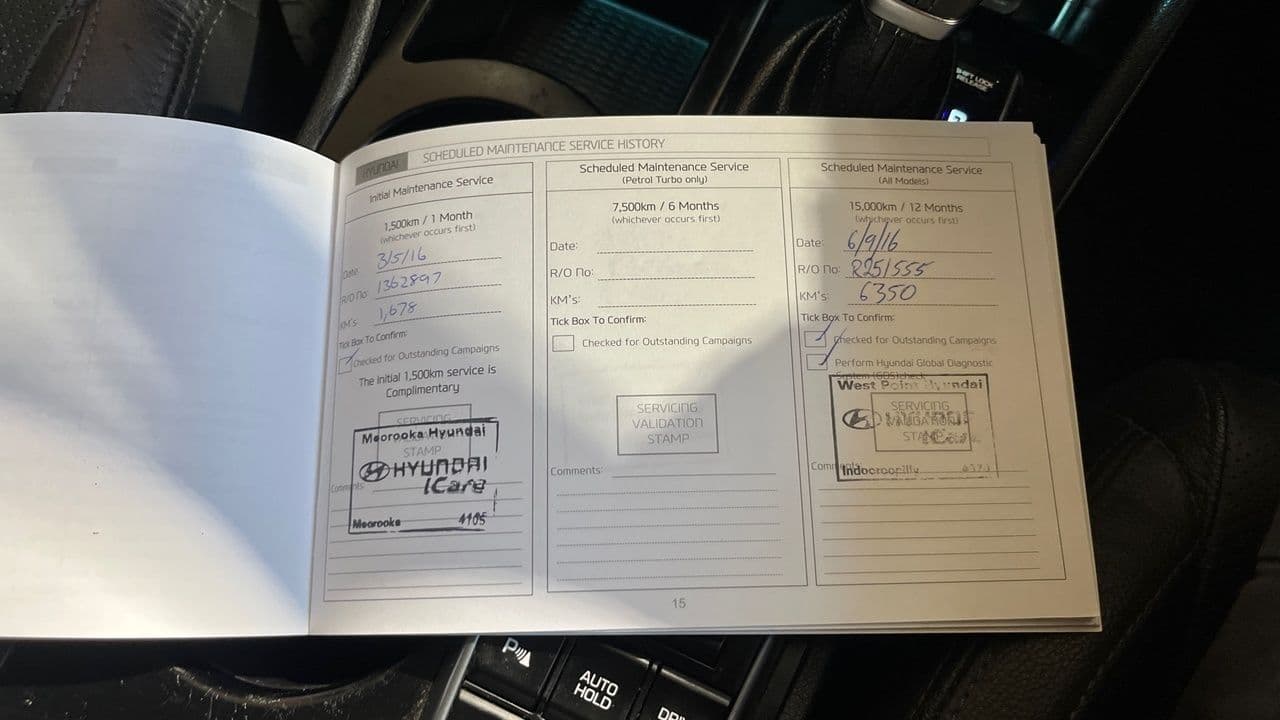 SHIFT LOCK
RELEASE
HYUNDAI
SCHEDULED MAINTENANCE SERVICE HISTORY
Initial Maintenance Service
1,500km / 1 Month
(whichever occurs first)
Date: 3/5/16
R/O No: 1362897
KM's: 1,678
Tick Box To Confirm:
Checked for Outstanding Campaigns
The Initial 1,500km service is
Complimentary
SERVICING
STAMP
Moorooka Hyundai
HYUNDAI
iCare
Moorooka 4105
Comments:
Scheduled Maintenance Service
(Petrol Turbo only)
7,500km / 6 Months
(whichever occurs first)
Date:
R/O No:
KM's:
Tick Box To Confirm:
Checked for Outstanding Campaigns
SERVICING
VALIDATION
STAMP
Comments:
Scheduled Maintenance Service
(All Models)
15,000km / 12 Months
(whichever occurs first)
Date: 6/9/16
R/O No: R251555
KM's: 6350
Tick Box To Confirm:
Checked for Outstanding Campaigns
Perform Hyundai Global Diagnostic
System (GDS) check
West Point Hyundai
SERVICING
VALIDATION
STAMP
HYUNDAI
iCare
Comments:
Indooroopilly
15
P
AUTO
HOLD